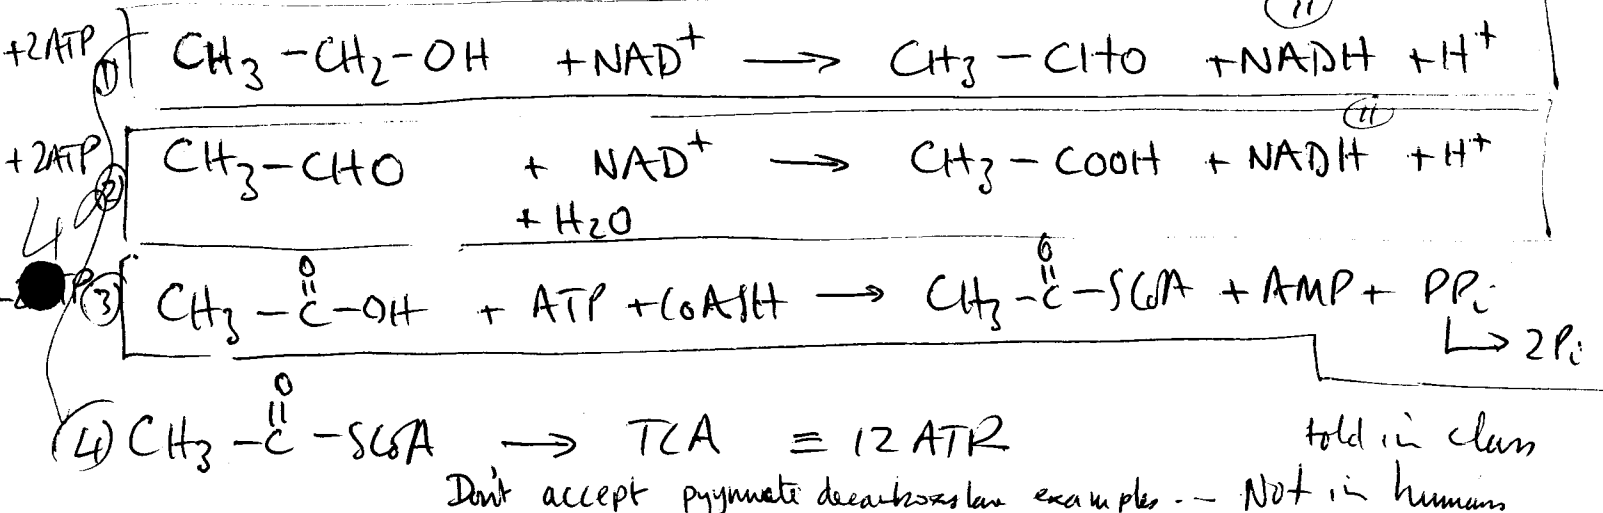 +2ATP ① CH₃-CH₂-OH +NAD⁺ → CH₃-CHO +NADH +H⁺
+2ATP ② CH₃-CHO + NAD⁺ → CH₃-COOH + NADH +H⁺
+ H₂O
4
③ CH₃-C-OH + ATP +CoASH → CH₃-C-SCoA + AMP + PPi
O O
↳ 2Pi
④ CH₃-C-SCoA → TCA ≡ 12 ATP told in class
O
Don't accept pyruvate decarboxylase examples -- Not in humans